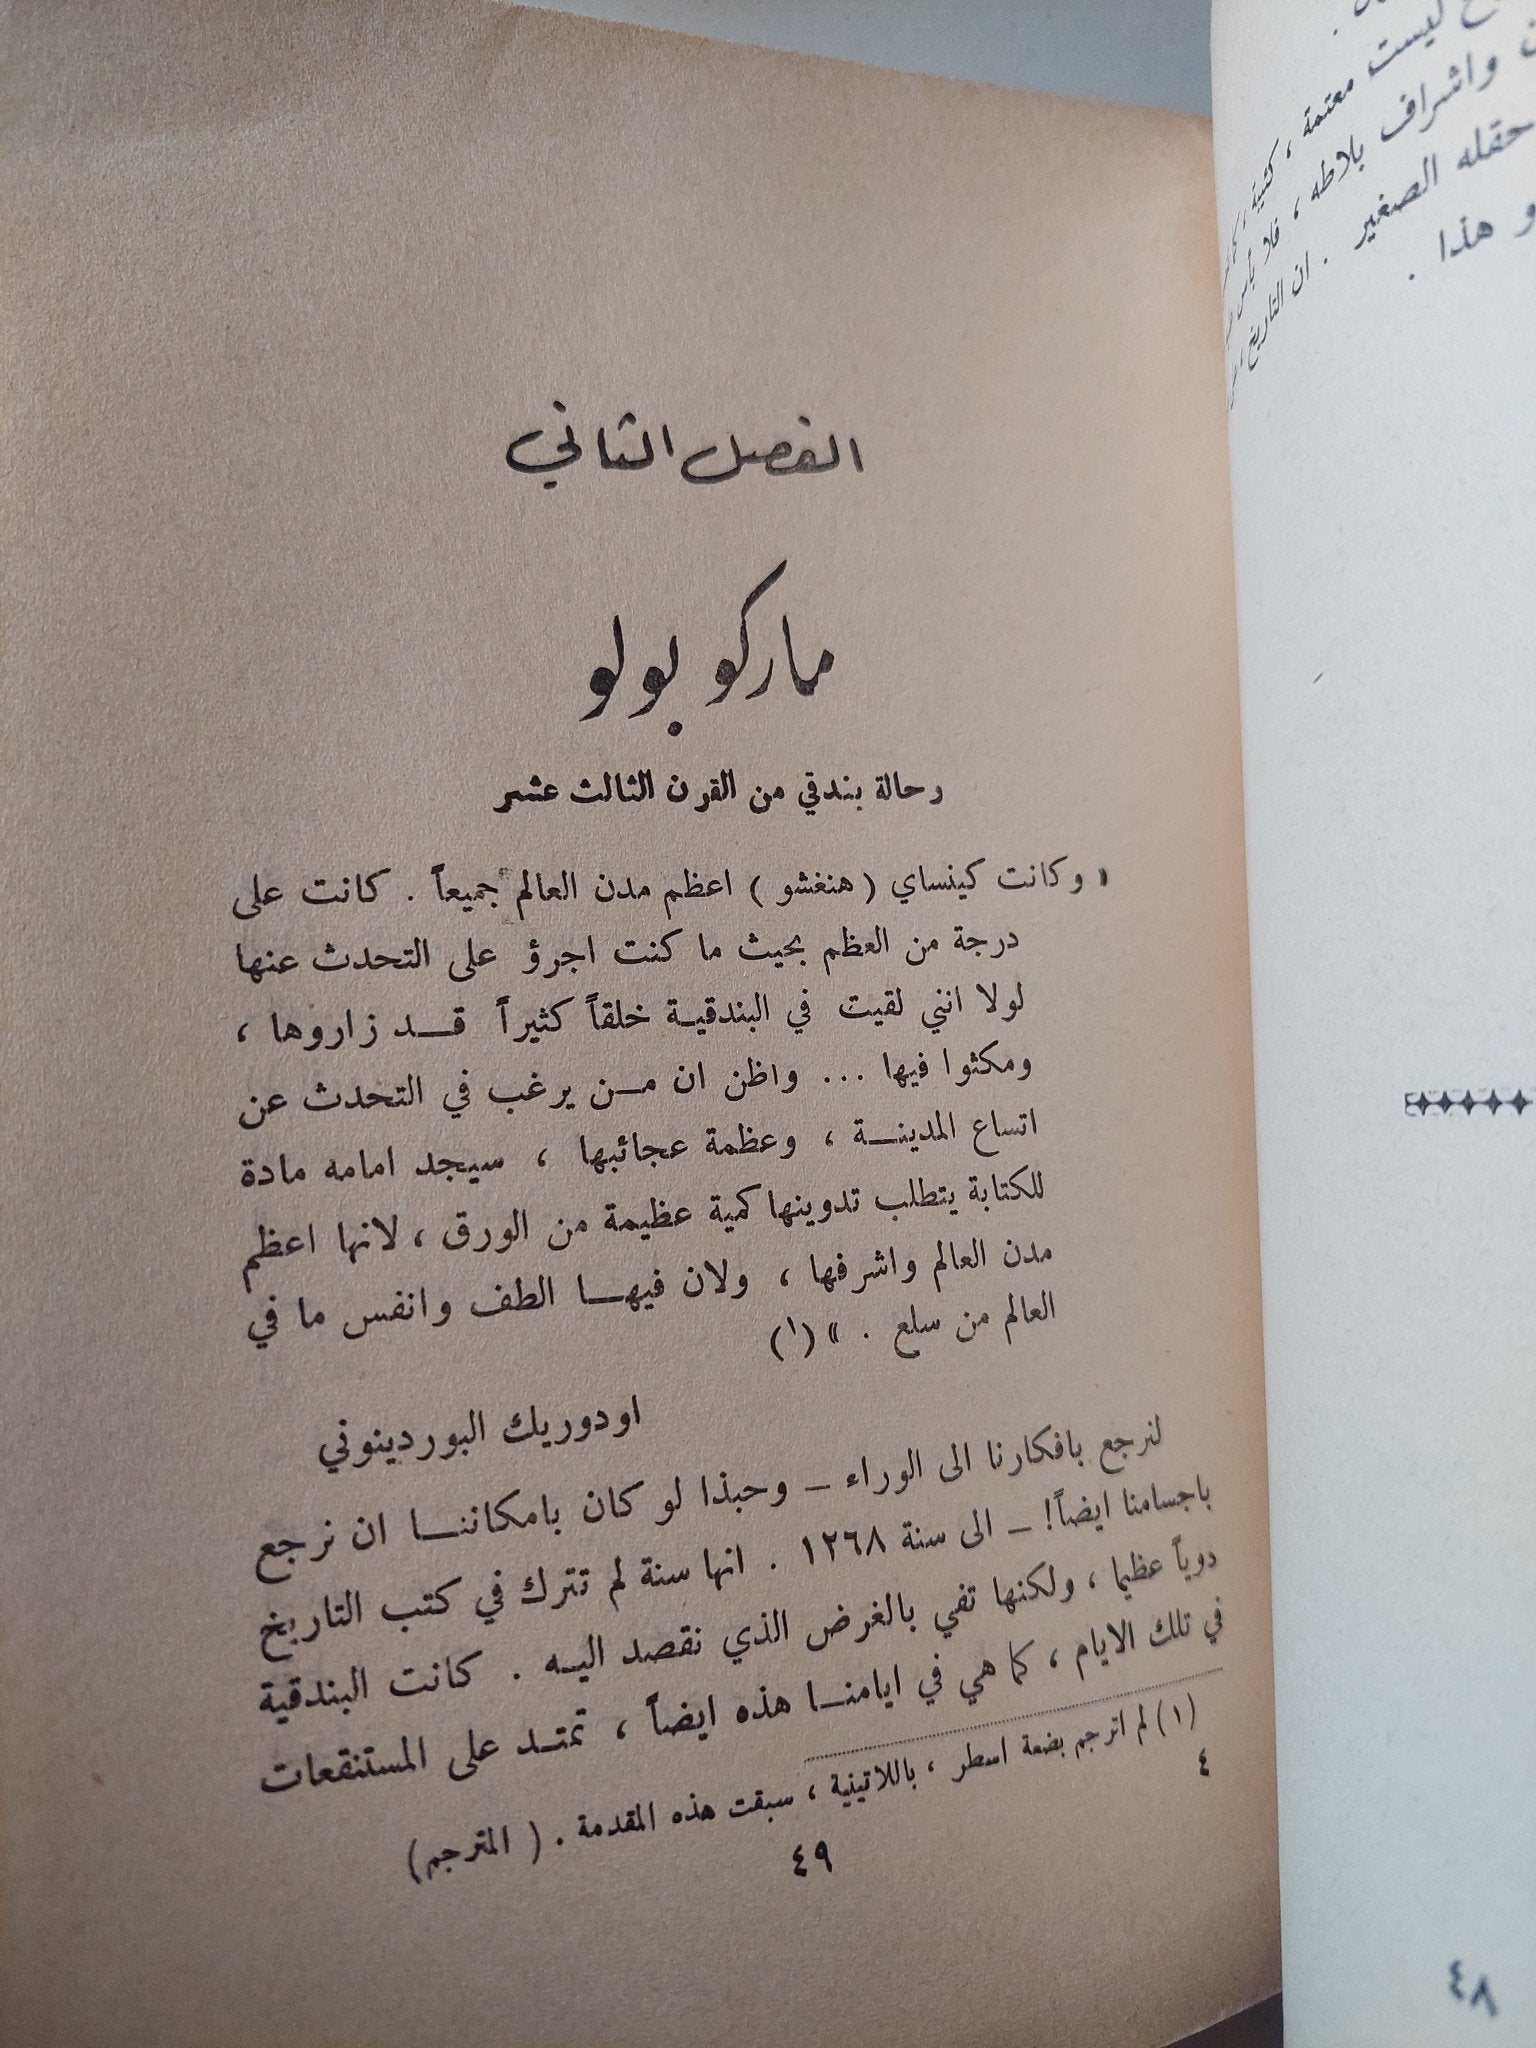 الفصل الثاني
ماركو بولو
رحالة بندقي من القرن الثالث عشر
« وكانت كينساي ( هنغشو ) اعظم مدن العالم جميعاً . كانت على
درجة من العظم بحيث ما كنت اجرؤ على التحدث عنها
لولا انني لقيت في البندقية خلقاً كثيراً قد زاروها ،
ومكثوا فيها ... واظن ان من يرغب في التحدث عن
اتساع المدينة ، وعظمة عجائبها ، سيجد امامه مادة
للكتابة يتطلب تدوينها كمية عظيمة من الورق ، لانها اعظم
مدن العالم واشرفها ، ولان فيها الطف وانفس ما في
العالم من سلع . » (١)
اودوريك البوردينوني
لنرجع بافكارنا الى الوراء – وحبذا لو كان بامكاننا ان نرجع
باجسامنا ايضاً! – الى سنة ١٢٦٨ . انها سنة لم تترك في كتب التاريخ
دوياً عظيما ، ولكنها تفي بالغرض الذي نقصد اليه . كانت البندقية
في تلك الايام ، كما هي في ايامنا هذه ايضاً ، تمتد على المستنقعات
(١) لم اترجم بضعة اسطر ، باللاتينية ، سبقت هذه المقدمة . ( المترجم )
٤
٤٩
ليست معتمة ،
واشراف بلاطه ، فلا بأس
حقله الصغير . ان التاريخ
هذا .
٤٨